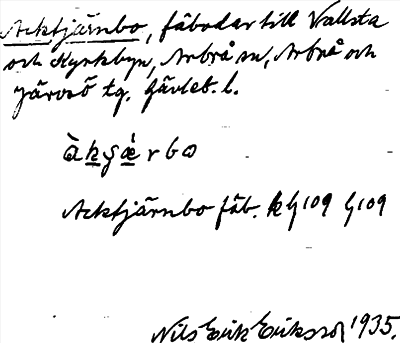 Acktjärnbo, fäbodar till Vallsta
och Kyrkbyn, Arbrå sn, Arbrå och
Järvsö tg. Gävleb. l.
àkʂæ̀rbω
Acktjärnbo fäb. k G109 G109
Nils Erik Eriksson 1935.